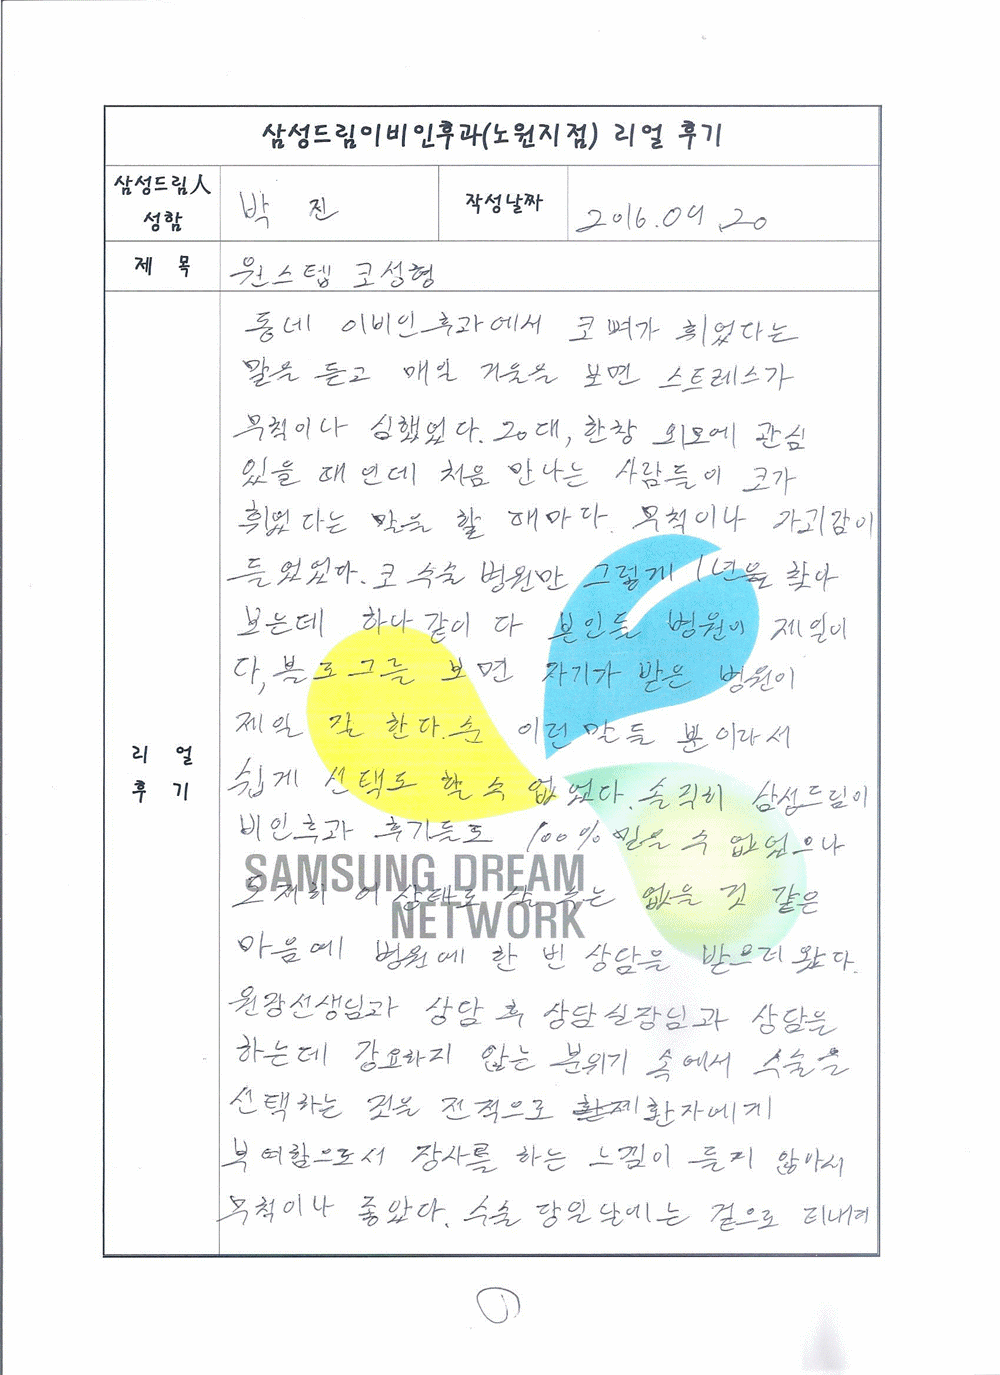 삼성드림이비인후과(노원지점) 리얼 후기
삼성드림人 성함
박 진
작성날짜
2016.09.20
제 목
원스텝 코성형
리 얼 후 기
동네 이비인후과에서 코 뼈가 휘었다는
말을 듣고 매일 거울을 보면 스트레스가
무척이나 심했었다. 20대, 한창 외모에 관심
있을 때 인데 처음 만나는 사람들이 코가
휘었다는 말을 할 때마다 무척이나 자괴감이
들었었다. 코 수술 병원만 그렇게 1년을 찾아
보는데 하나 같이 다 본인들 병원이 제일이
다, 블로그를 보면 자기가 받은 병원이
제일 잘 한다. 순 이런 말들 뿐이라서
쉽게 선택도 할 수 없었다. 솔직히 삼성드림이
비인후과 후기들도 100% 믿을 수 없었으나
도저히 이 상태로 살 수는 없을 것 같은
마음에 병원에 한 번 상담을 받으러 왔다.
원장선생님과 상담 후 상담실장님과 상담을
하는데 강요하지 않는 분위기 속에서 수술을
선택하는 것을 전적으로 환자에게
부여함으로서 장사를 하는 느낌이 들지 않아서
무척이나 좋았다. 수술 당일날에는 겉으로 티내려
SAMSUNG DREAM
NETWORK